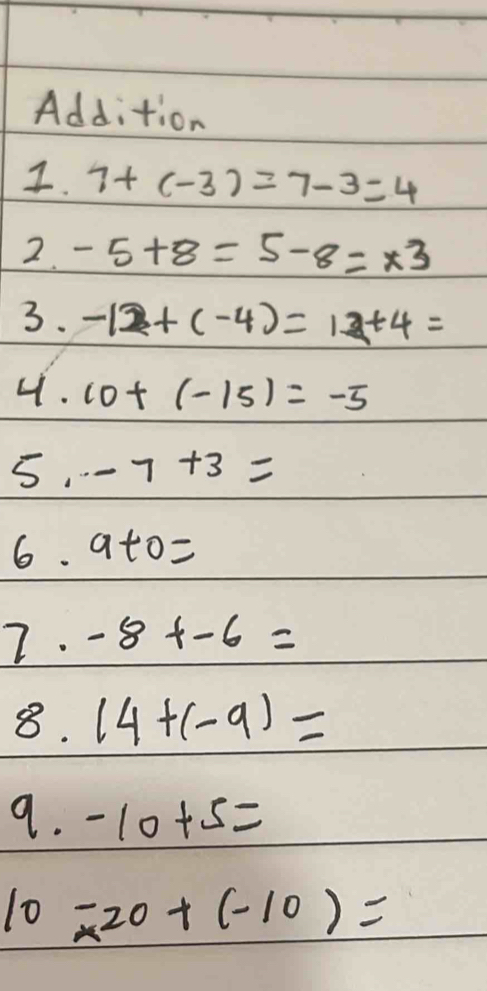 Addition
1. 7+ (-3) = 7-3=4
2. -5+8 = 5-8= ×3
3. -12+(-4)= 12+4=
4. 10+ (-15)= -5
5. -7 +3 =
6. 9+0=
7. -8+-6 =
8. 14+(-9) =
9. -10+5=
10 -20 + (-10) =